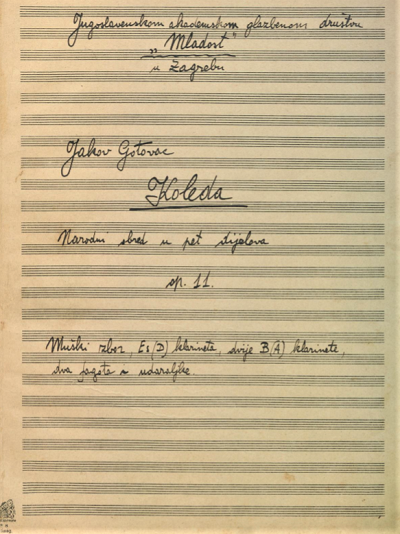 Jugoslavenskom akademskom glazbenom društvu
„Mladost"
u Zagrebu
Jakov Gotovac
Koleda
Narodni obred u pet dijelova
op. 11.
Muški zbor, Es (D) klarinete, dvije B (A) klarinete,
dva fagota i udaraljke.